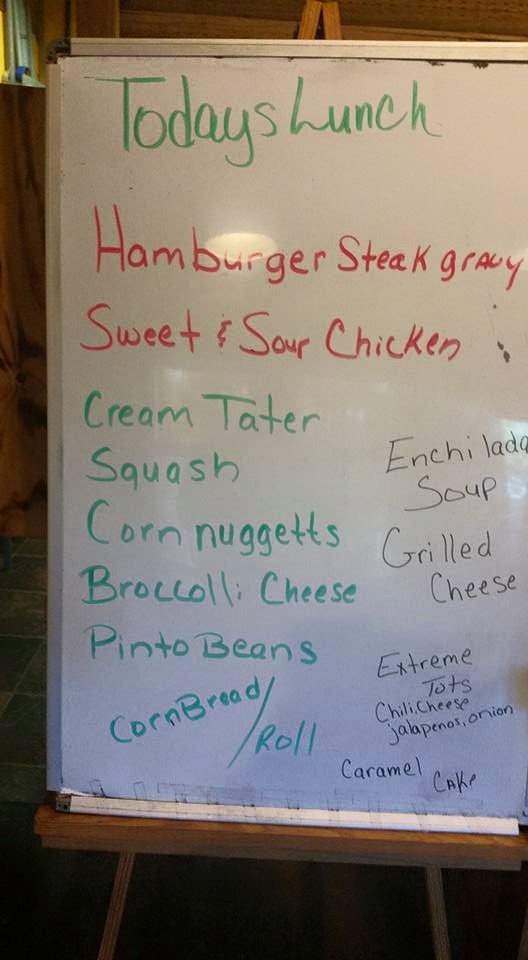 Todays Lunch
Hamburger Steak gravy
Sweet & Sour Chicken
Cream Tater
Squash
Corn nuggetts
Broccolli Cheese
Pinto Beans
CornBread/
Roll
Enchilada
Soup
Grilled
Cheese
Extreme
Tots
Chili, Cheese
jalapenos, onion
Caramel Cake